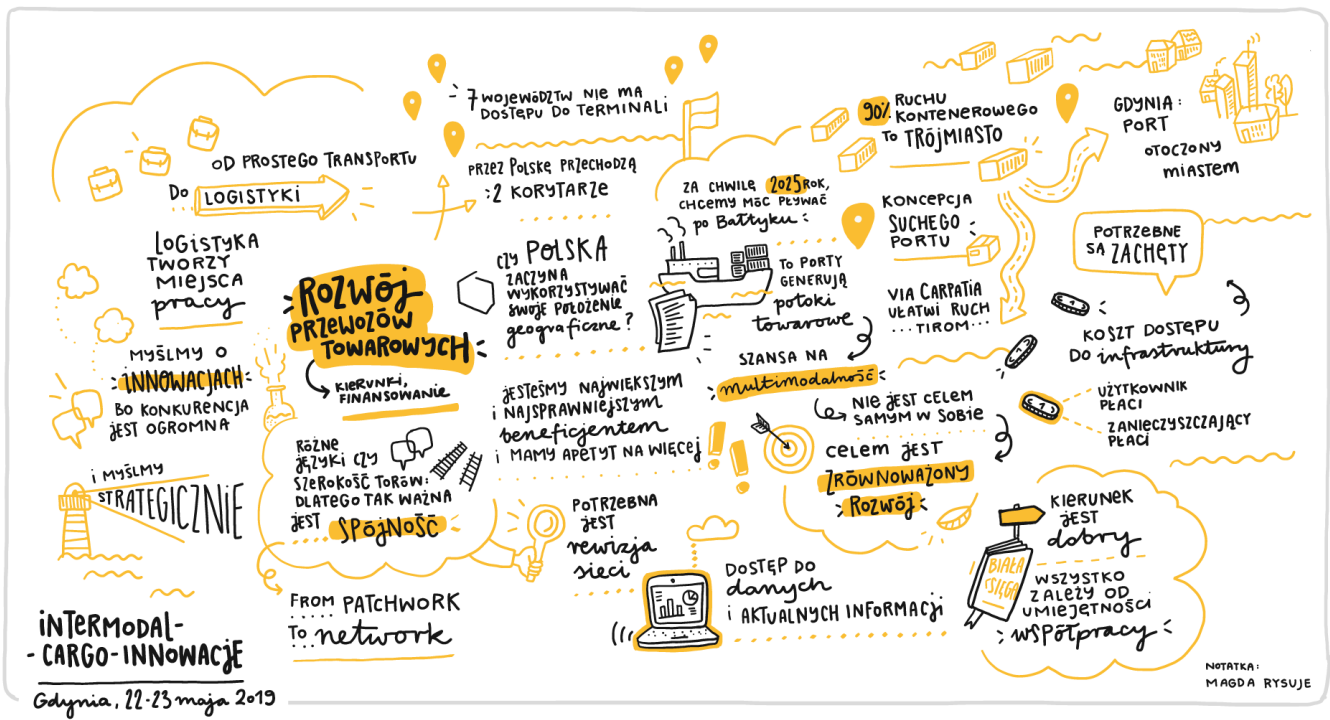 OD PROSTEGO TRANSPORTU
DO LOGISTYKI
LOGISTYKA
TWORZY
MIEJSCA
pracy
MYŚLMY O
INNOWACJACH
BO KONKURENCJA
JEST OGROMNA
I MYŚLMY
STRATEGICZNIE
INTERMODAL-
-CARGO-INNOWACJE
Gdynia, 22-23 maja 2019
ROZWÓJ
PRZEWOZÓW
TOWAROWYCH
KIERUNKI,
FINANSOWANIE
RÓŻNE
JĘZYKI CZY
SZEROKOŚĆ TORÓW:
DLATEGO TAK WAŻNA
JEST SPÓJNOŚĆ
FROM PATCHWORK
TO network
7 WOJEWÓDZTW NIE MA
DOSTĘPU DO TERMINALI
PRZEZ POLSKĘ PRZECHODZĄ
2 KORYTARZE
CZY POLSKA
ZACZYNA
WYKORZYSTYWAĆ
SWOJE POŁOŻENIE
geograficzne?
JESTEŚMY NAJWIĘKSZYM
I NAJSPRAWNIEJSZYM
beneficjentem
I MAMY APETYT NA WIĘCEJ
POTRZEBNA
JEST
rewizja
sieci
ZA CHWILĘ 2025 ROK,
CHCEMY MÓC PŁYWAĆ
po Bałtyku:
TO PORTY
GENERUJĄ
potoki
towarowe
SZANSA NA
multimodalność
NIE JEST CELEM
SAMYM W SOBIE
CELEM JEST
ZRÓWNOWAŻONY
ROZWÓJ
DOSTĘP DO
danych
I AKTUALNYCH INFORMACJI
90% RUCHU
KONTENEROWEGO
TO TRÓJMIASTO
KONCEPCJA
SUCHEGO
PORTU
VIA CARPATIA
UŁATWI RUCH
TIROM
GDYNIA:
PORT
OTOCZONY
MIASTEM
POTRZEBNE
SĄ ZACHĘTY
KOSZT DOSTĘPU
DO infrastruktury
1
UŻYTKOWNIK
PŁACI
ZANIECZYSZCZAJĄCY
PŁACI
BIAŁA
KSIĘGA
KIERUNEK
JEST
dobry
WSZYSTKO
ZALEŻY OD
UMIEJĘTNOŚCI
WSPÓŁPRACY
NOTATKA:
MAGDA RYSUJE